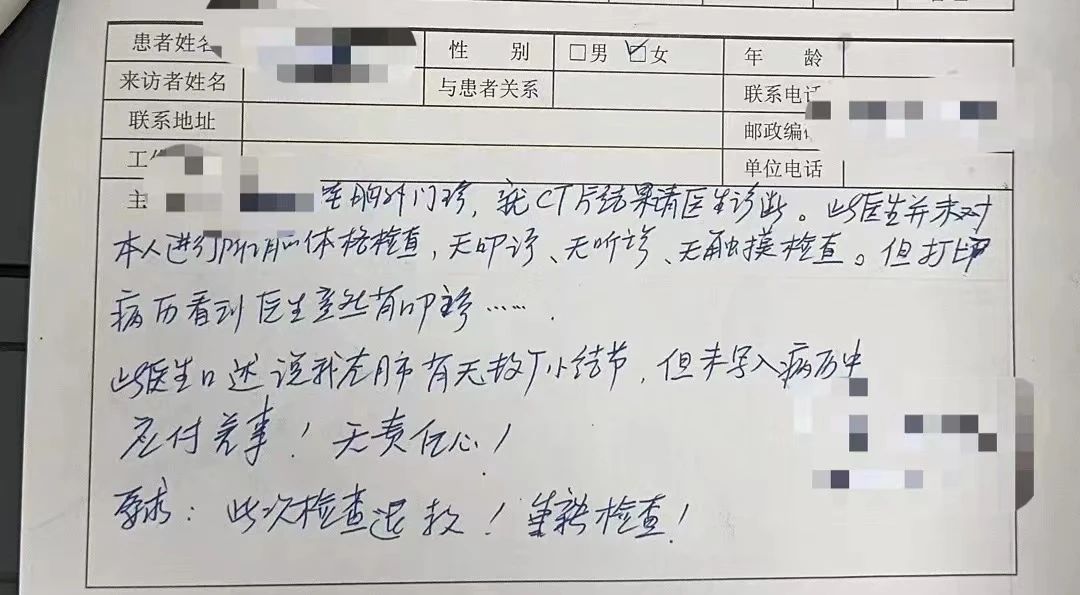 患者姓名 性 别 □男 ☑女 年 龄
来访者姓名 与患者关系 联系电话
联系地址 邮政编
工 单位电话
主 胸外门诊,就CT片结果请医生诊断。此医生并未对
本人进行 体格检查,无叩诊、无听诊、无触摸检查。但打印
病历看到医生竟然有叩诊……
此医生口述说我左肺有无数个小结节,但未写入病历中
应付差事!无责任心!
要求:此次检查退款!重新检查!